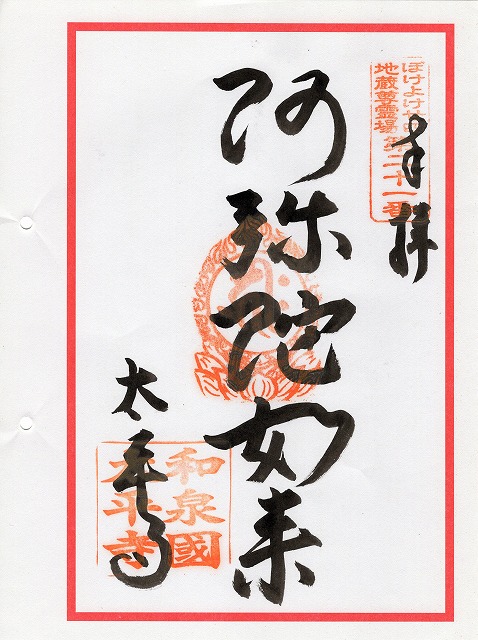 奉拝
ぼけよけ
地蔵尊霊場 第二十一番
阿弥陀如来
太平寺
和泉國
太平寺